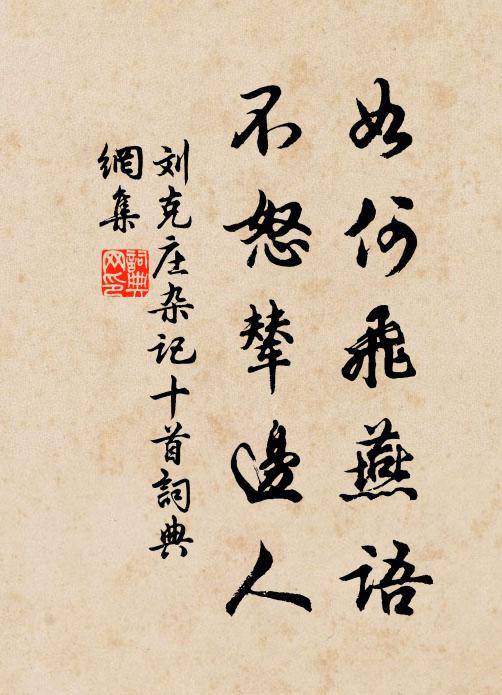 如何飛燕語
不怒輦邊人
刘克庄杂记十首詞典
網集
詞典
网印